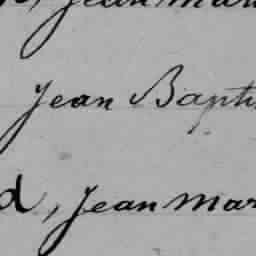 Jean Mar
Jean Bapti
d, Jean Mar